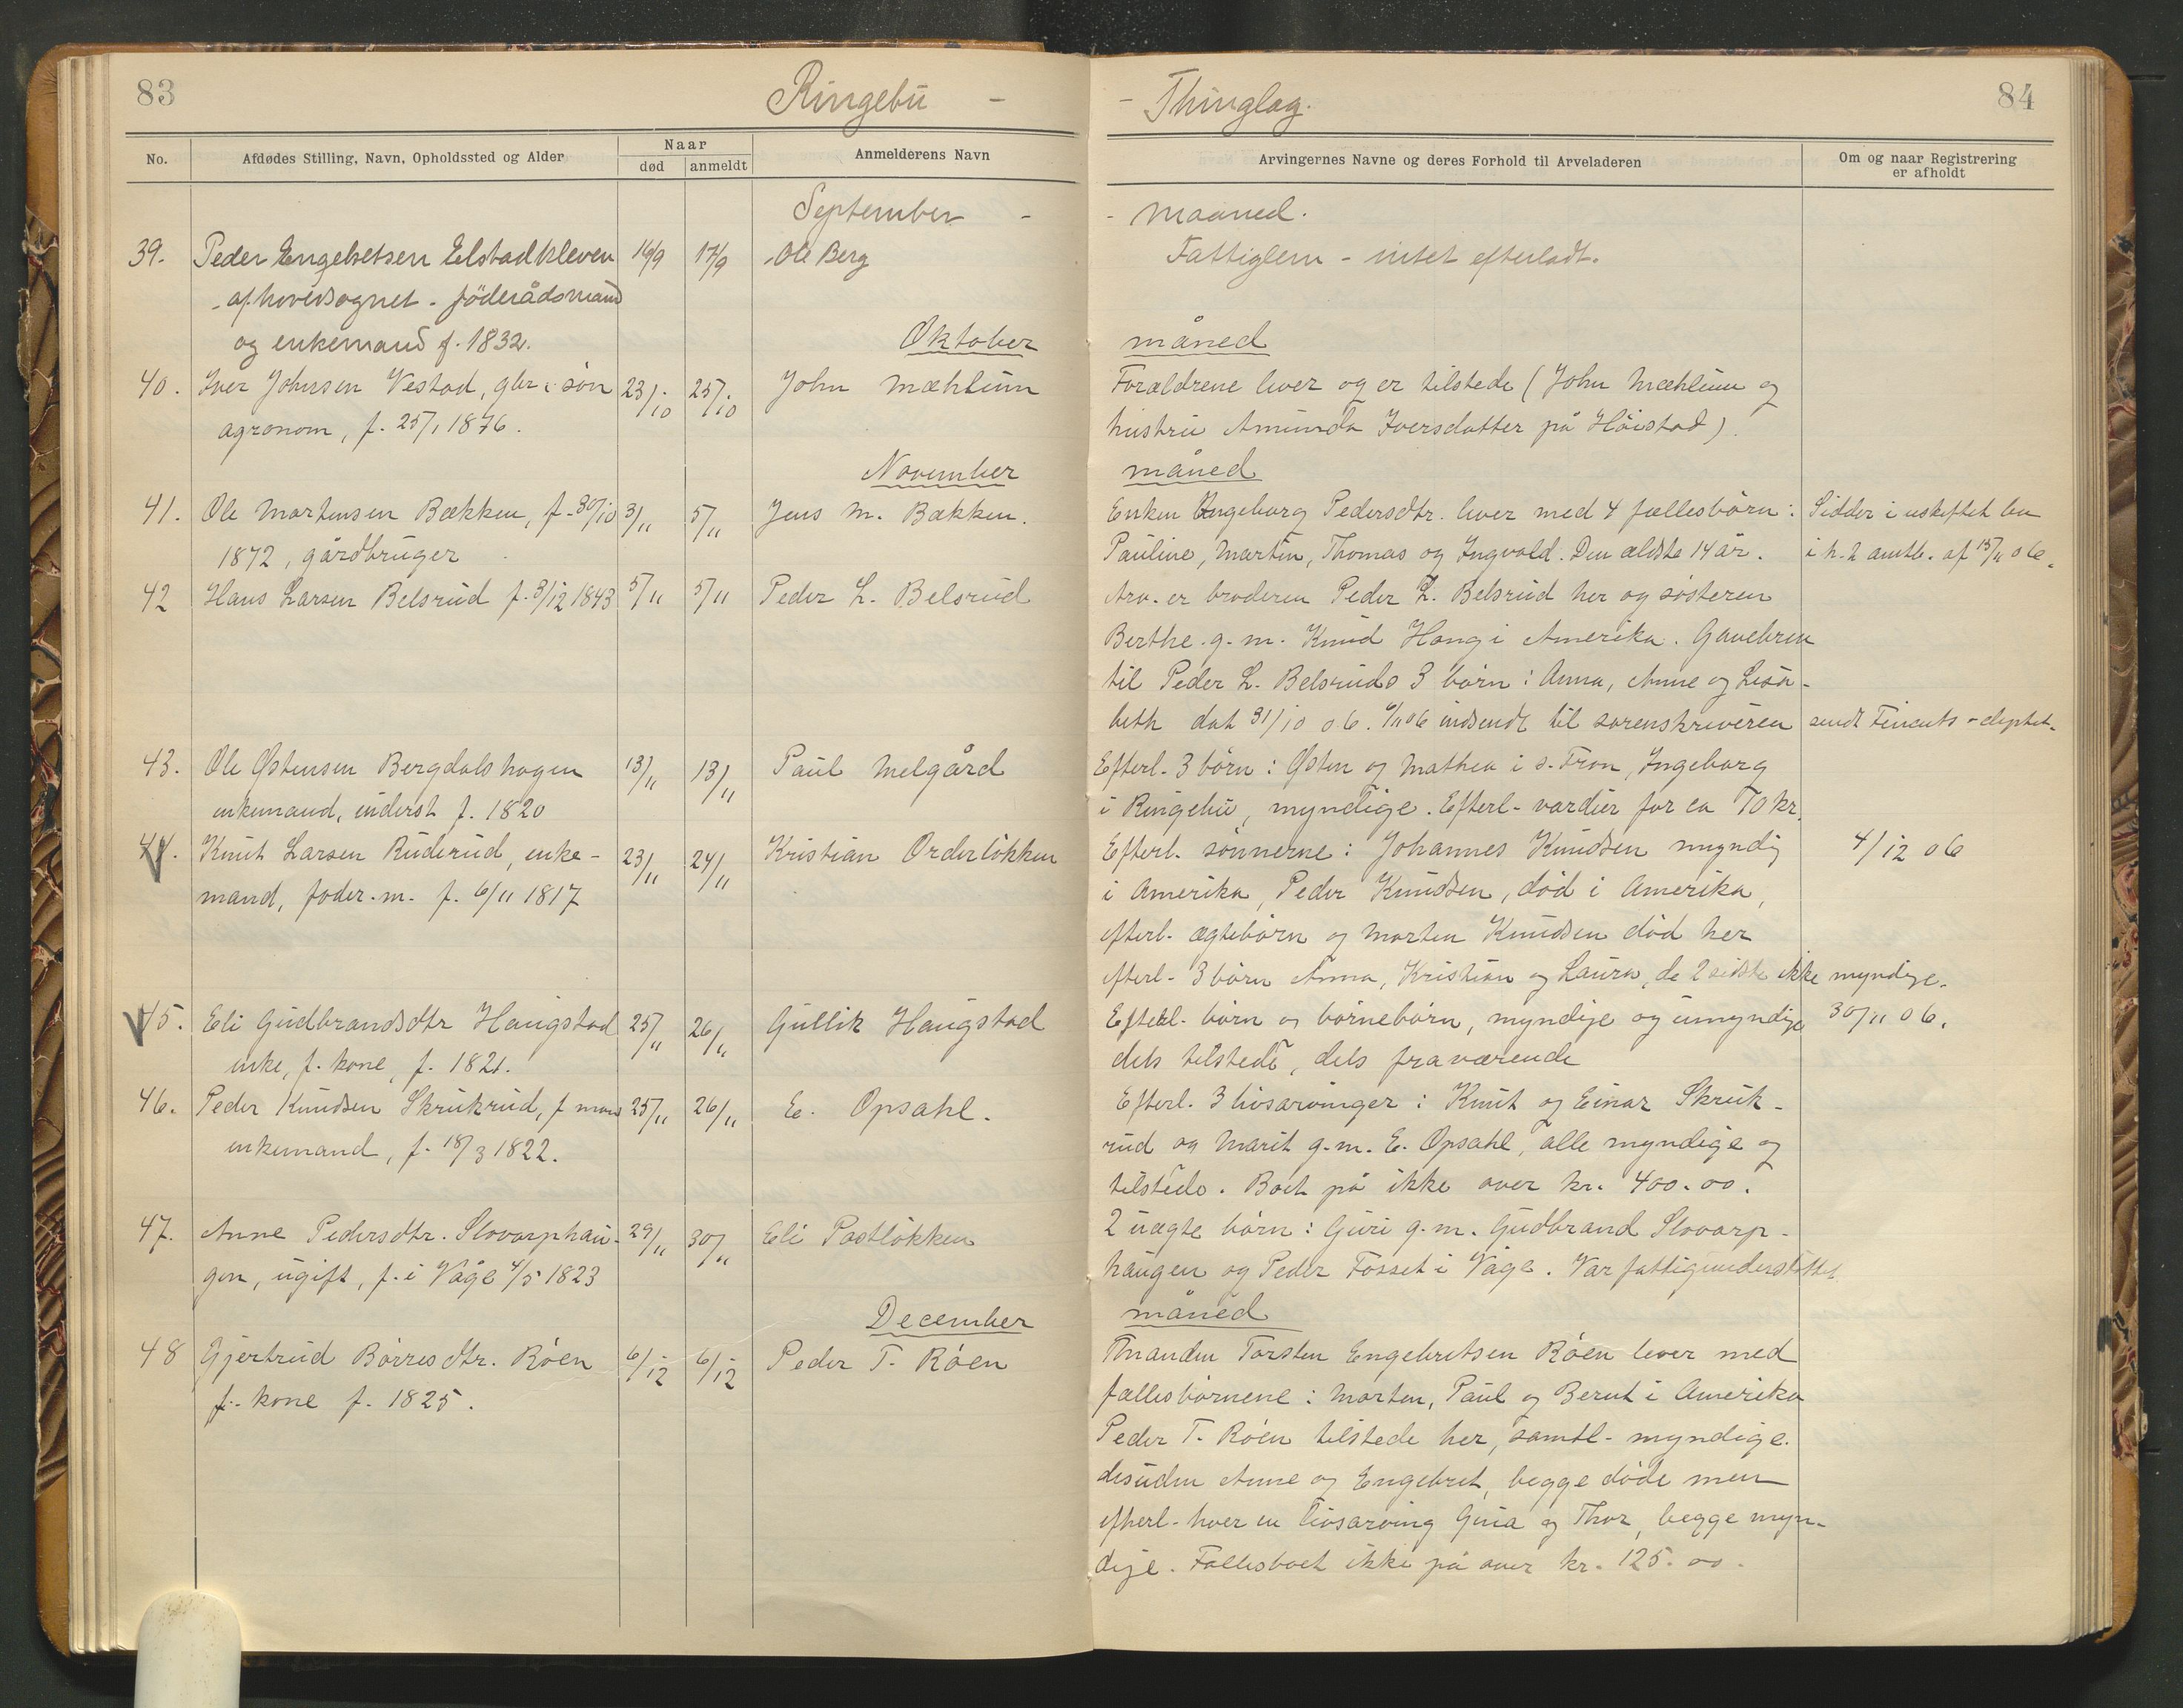 83
Ringebu -
- Thinglag.
84
No.
Afdødes Stilling, Navn, Opholdssted og Alder
Naar
død
anmeldt
Anmelderens Navn
Arvingernes Navne og deres Forhold til Arveladeren
Om og naar Registrering
er afholdt
September -
- maaned.
39. Peder Engebretsen Elstadkleven 16/9 17/9 Ole Berg
Fattiglem - intet efterladt.
af hovedsognet. føderådsmand
og enkemand f. 1832.
Oktober
måned
40. Iver Johnsen Vestad, gbr. søn 23/10 25/10 John Mæhlum
Forældrene lever og er tilstede (John Mæhlum og
agronom, f. 25/1 1876.
hustru Amunda Iversdatter på Høistad).
November
måned
41. Ole Martensen Bækken, f. 30/10 3/11 5/11 Jens M. Bækken.
Enken Ingeborg Pedersdtr. lever med 4 fællesbörn: Sidder i uskiftet bo
1872, gårdbruger
Pauline, Martin, Thomas og Ingvald. Den ældste 14 år. i h. t. amtb. af 15/11 06.
42 Hans Larsen Belsrud f. 3/12 1843 5/11 5/11 Peder L. Belsrud
Arv. er broderen Peder L. Belsrud her og søsteren
Berthe g. m. Knud Haug i Amerika. Gavebrev
til Peder L. Belsruds 3 börn: Anna, Anne og Lisa-
beth dat 31/10 06. 6/11 06 indsendt til sorenskriveren sendt Finants-deptet.
43. Ole Østensen Bergdalshagen 13/11 13/11 Paul Melgård
Efterl. 3 börn: Østen og Mathea i s. Fron, Ingeborg
enkemand, inderst f. 1820
i Ringebu, myndige. Efterl. værdier for ca 70 kr.
44. Knut Larsen Ruderud, enke- 23/11 24/11 Kristian Orderløkken
Efterl. sønnerne: Johannes Knudsen myndig 4/12 06
mand, føder. m. f. 6/11 1817
i Amerika, Peder Knudsen, død i Amerika,
efterl. ægtebörn og Morten Knudsen død her
efterl. 3 börn Anna, Kristian og Laura, de 2 sidste ikke myndige.
45. Eli Gudbrandsdtr Haugstad 25/11 26/11 Gullik Haugstad
Efterl. börn og börnebörn, myndige og umyndige 30/11 06.
enke, f. kone, f. 1821.
dels tilstede, dels fraværende
46. Peder Knudsen Skrukrud, f mand 25/11 26/11 E. Opsahl.
Efterl. 3 livsarvinger: Knut og Einar Skruk-
enkemand, f. 18/3 1822.
rud og Marit g. m. E. Opsahl, alle myndige og
tilstede. Boet på ikke over kr. 400.00.
47. Anne Pedersdtr. Slovarphau- 29/11 30/11 Eli Pastløkken
2 uægte börn: Guri g. m. Gudbrand Slovarp-
gen, ugift, f. i Våge 4/5 1823
haugen og Peder Fosset i Våge. Var fattigunderstøttet
December
måned
48 Gjertrud Børresdtr. Røen 6/12 6/12 Peder T. Røen
Manden Torsten Engebretsen Røen lever med
f. kone f. 1825.
fællesbörnene: Morten, Paul og Bernt i Amerika
Peder T. Røen tilstede her, samtl. myndige.
desuden Anne og Engebret, begge døde men
efterl. hver en livsarving Guria og Thor, begge myn-
dige. Fællesboet ikke på over kr. 125.00.